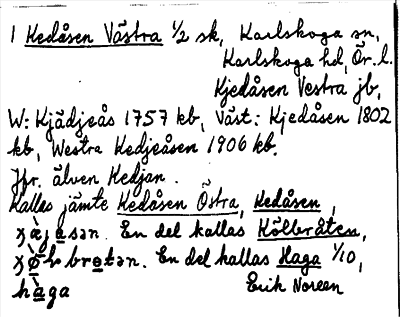 1 Kedåsen Västra 1/2 sk, Karlskoga sn,
Karlskoga hd, Ör. l.
Kjedåsen Vestra jb,
W: Kjädjeås 1757 kb, Väst: Kjedåsen 1802
kb, Westra Kedjeåsen 1906 kb.
Jfr. älven Kedjan.
Kallas jämte Kedåsen Östra, Kedåsen,
En del kallas Kölbråten,
En del kallas Haga 1/10,
haga Erik Noreen